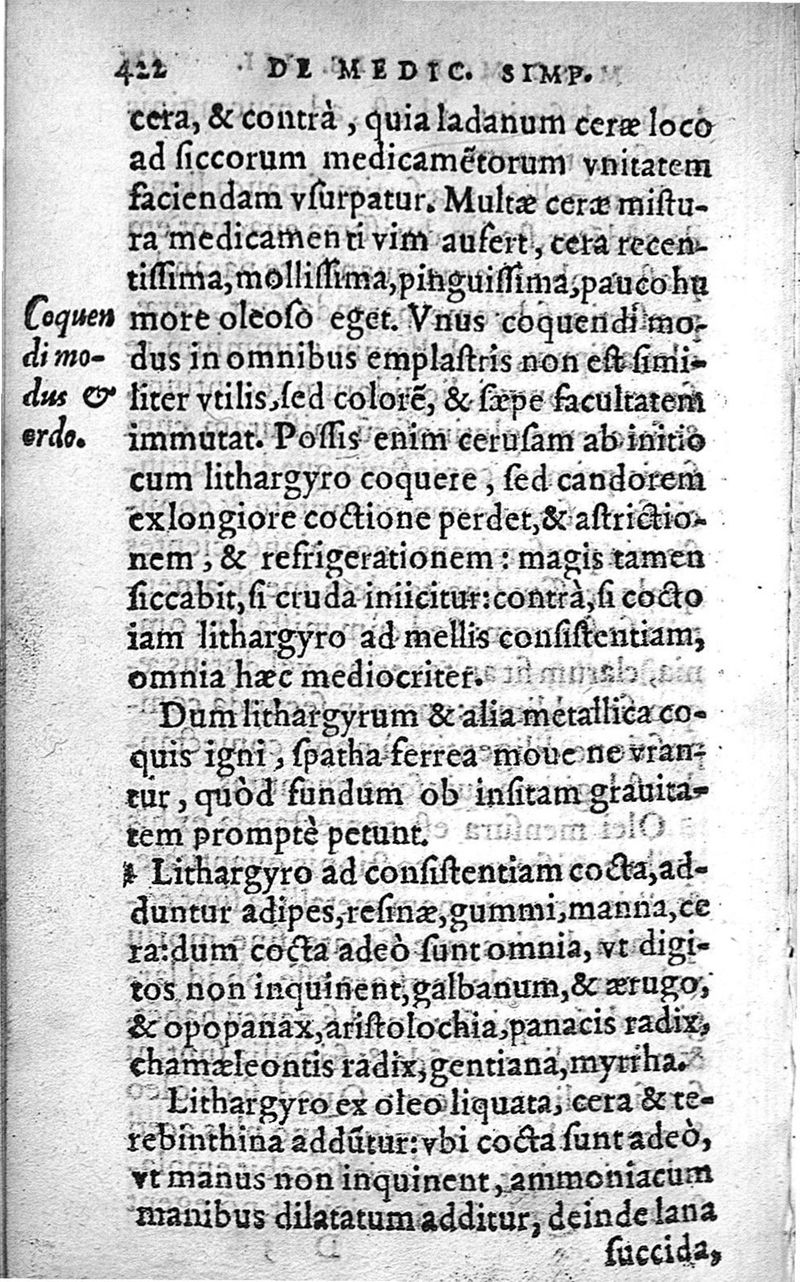 422 DE MEDIC. SIMP.
cera, & contrà, quia ladanum ceræ loco
ad ſiccorum medicamẽtorum vnitatem
faciendam vſurpatur. Multæ ceræ miſtu-
ra medicamenti vim aufert, cera recen-
tiſſima, molliſſima, pinguiſſima, pauco hu
more oleoſo eget. Vnus coquendi mo-
dus in omnibus emplaſtris non eſt ſimi-
liter vtilis, ſed colorẽ, & ſæpe facultatem
immutat. Poſſis enim ceruſam ab initio
cum lithargyro coquere, ſed candorem
ex longiore coctione perdet, & aſtrictio-
nem, & refrigerationem: magis tamen
ſiccabit, ſi cruda iniicitur: contrà, ſi cocto
iam lithargyro ad mellis conſiſtentiam,
omnia hæc mediocriter.
Coquen
di mo-
dus &
ordo.
Dum lithargyrum & alia metallica co-
quis igni, ſpatha ferrea moue ne vran-
tur, quòd fundum ob inſitam grauita-
tem promptè petunt.
Lithargyro ad conſiſtentiam cocta, ad-
duntur adipes, reſinæ, gummi, manna, ce
ra: dum cocta adeò ſunt omnia, vt digi-
tos non inquinent, galbanum, & ærugo,
& opopanax, ariſtolochia, panacis radix,
chamæleontis radix, gentiana, myrrha.
Lithargyro ex oleo liquata, cera & te-
rebinthina addũtur: vbi cocta ſunt adeò,
vt manus non inquinent, ammoniacum
manibus dilatatum additur, deinde lana
ſuccida,